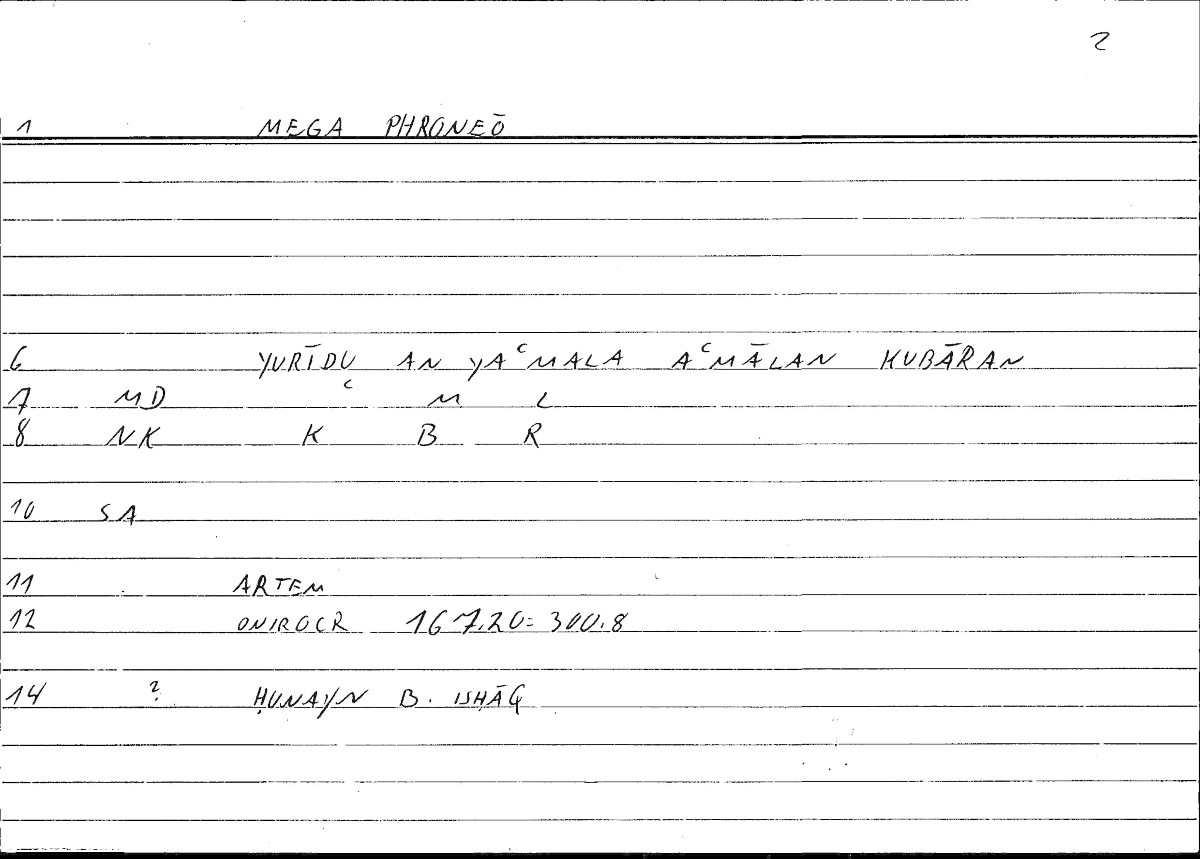 2
1 MEGA PHRONEŌ
6 YURĪDU AN YAʿMALA AʿMĀLAN KUBĀRAN
7 MD ʿ M L
8 NK K B R
10 SA
11 ARTEM
12 ONIROCR 167.20=300.8
14 ? ḤUNAYN B. ISḤĀQ